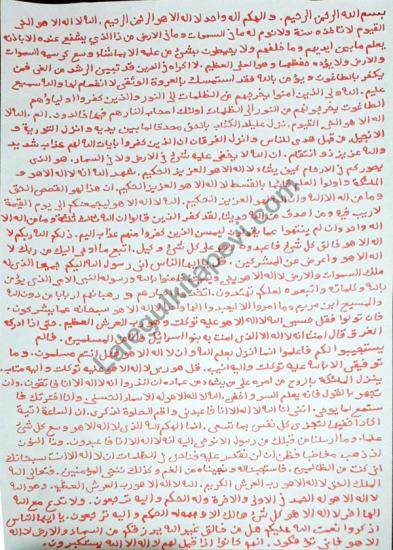 بسم الله الرحمن الرحيم . والهكم اله واحد لا اله الا هو الرحمن الرحيم . الله لا اله الا هو الحي
القيوم لا تاخذه سنة ولا نوم له ما في السموات وما في الارض من ذا الذي يشفع عنده الا باذنه
يعلم ما بين ايديهم وما خلفهم ولا يحيطون بشئ من علمه الا بما شاء وسع كرسيه السموات
والارض ولا يؤده حفظهما وهو العلي العظيم . لا اكراه في الدين قد تبين الرشد من الغي فمن
يكفر بالطاغوت ويؤمن بالله فقد استمسك بالعروة الوثقى لا انفصام لها والله سميع
عليم . الله ولي الذين امنوا يخرجهم من الظلمات الى النور والذين كفروا اولياؤهم
الطاغوت يخرجونهم من النور الى الظلمات اولئك اصحاب النار هم فيها خالدون . الم . الله لا اله
الا هو الحي القيوم . نزل عليك الكتاب بالحق مصدقا لما بين يديه وانزل التورية و
الانجيل . من قبل هدى للناس وانزل الفرقان ان الذين كفروا بايات الله لهم عذاب شديد
والله عزيز ذو انتقام . ان الله لا يخفى عليه شئ في الارض ولا في السماء . هو الذي
يصوركم في الارحام كيف يشاء لا اله الا هو العزيز الحكيم . شهد الله انه لا اله الا هو و
الملئكة واولوا العلم قائما بالقسط لا اله الا هو العزيز الحكيم . ان هذا لهو القصص الحق
وما من اله الا الله وان الله لهو العزيز الحكيم . الله لا اله الا هو ليجمعنكم الى يوم القيمة
لا ريب فيه ومن اصدق من الله حديثا . لقد كفر الذين قالوا ان الله ثالث ثلثة وما من اله الا
اله واحد وان لم ينتهوا عما يقولون ليمسن الذين كفروا منهم عذاب اليم . ذلكم الله ربكم لا اله
الا هو خالق كل شئ فاعبدوه وهو على كل شئ وكيل . اتبع ما اوحي اليك من ربك لا
اله الا هو واعرض عن المشركين . قل يا ايها الناس اني رسول الله اليكم جميعا الذي له
ملك السموات والارض لا اله الا هو يحيي ويميت فامنوا بالله ورسوله النبي الامي الذي يؤمن
بالله وكلماته واتبعوه لعلكم تهتدون . اتخذوا احبارهم ورهبانهم اربابا من دون الله
والمسيح ابن مريم وما امروا الا ليعبدوا الها واحدا لا اله الا هو سبحانه عما يشركون .
فان تولوا فقل حسبي الله لا اله الا هو عليه توكلت وهو رب العرش العظيم . حتى اذا ادركه
الغرق قال امنت انه لا اله الا الذي امنت به بنوا اسرائيل وانا من المسلمين . فالم
يستجيبوا لكم فاعلموا انما انزل بعلم الله وان لا اله الا هو فهل انتم مسلمون . وما
توفيقي الا بالله عليه توكلت واليه انيب . قل هو ربي لا اله الا هو عليه توكلت واليه متاب .
ينزل الملئكة بالروح من امره على من يشاء من عباده ان انذروا انه لا اله الا انا فاتقون . وان
تجهر بالقول فانه يعلم السر واخفى . الله لا اله الا هو له الاسماء الحسنى . وانا اخترتك فا
ستمع لما يوحى . انني انا الله لا اله الا انا فاعبدني واقم الصلوة لذكري . ان الساعة اتية
اكاد اخفيها لتجزى كل نفس بما تسعى . انما الهكم الله الذي لا اله الا هو وسع كل شئ
علما . وما ارسلنا من قبلك من رسول الا نوحي اليه انه لا اله الا انا فاعبدون . وذا النون
اذ ذهب مغاضبا فظن ان لن نقدر عليه فنادى في الظلمات ان لا اله الا انت سبحانك
اني كنت من الظالمين . فاستجبنا له ونجيناه من الغم وكذلك ننجي المؤمنين . فتعالى الله
الملك الحق لا اله الا هو رب العرش الكريم . الله لا اله الا هو رب العرش العظيم . وهو الله
لا اله الا هو له الحمد في الاولى والاخرة وله الحكم واليه ترجعون . ولا تدع مع الله
الها اخر لا اله الا هو كل شئ هالك الا وجهه له الحكم واليه ترجعون . يا ايها الناس
اذكروا نعمت الله عليكم هل من خالق غير الله يرزقكم من السماء والارض لا اله
الا هو فانى تؤفكون . انهم كانوا اذا قيل لهم لا اله الا الله يستكبرون .
Lalegulkitapevi.com